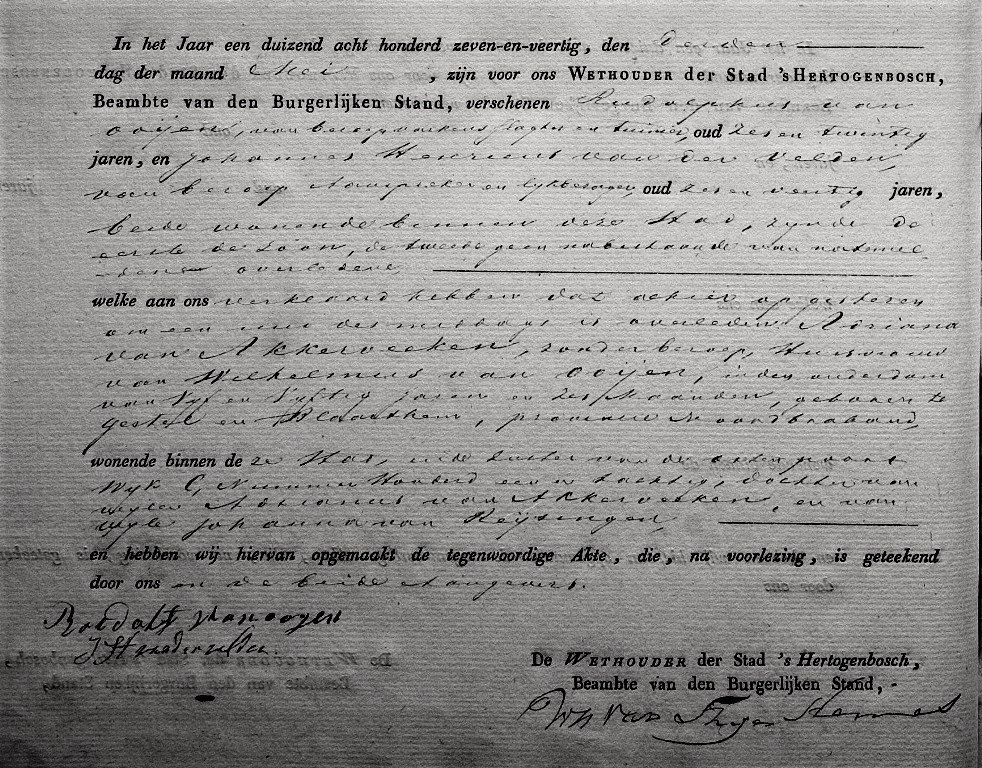 In het Jaar een duizend acht honderd zeven-en-veertig, den derden
dag der maand Mei , zijn voor ons WETHOUDER der Stad 's HERTOGENBOSCH,
Beambte van den Burgerlijken Stand, verschenen Rudolphus van
ooijen, van beroep varkens slagter en tuinier, oud zes en twintig
jaren, en Johannes Henricus van der Velden,
van beroep Aanspreker en lijkbezorger, oud zes en veertig jaren,
beide wonende binnen deze Stad, zijnde de
eerste de zoon, de tweede geen nabestaande van natemel
dene overledene,
welke aan ons verklaard hebben dat alhier op gisteren
om een uur des middags is overleden Adriana
van Akkerveeken, zonder beroep, Huisvrouw
van Wilhelmus van ooijen, in den ouderdom
van Vijf en Vijftig jaren en zes Maanden, geboren te
Gestel en Blaarthem, provincie Noordbraband,
wonende binnen deze Stad, in de van de
Wijk C, Nummer Honderd een en tachtig, dochter van
wijlen Adrianus van Akkerveeken, en van
wijlen Johanna van Keijsingen,
en hebben wij hiervan opgemaakt de tegenwoordige Akte, die, na voorlezing, is geteekend
door ons en de beide Aangevers.
Roedolf van ooyen
J H van der velden
De WETHOUDER der Stad 's Hertogenbosch,
Beambte van den Burgerlijken Stand,
van